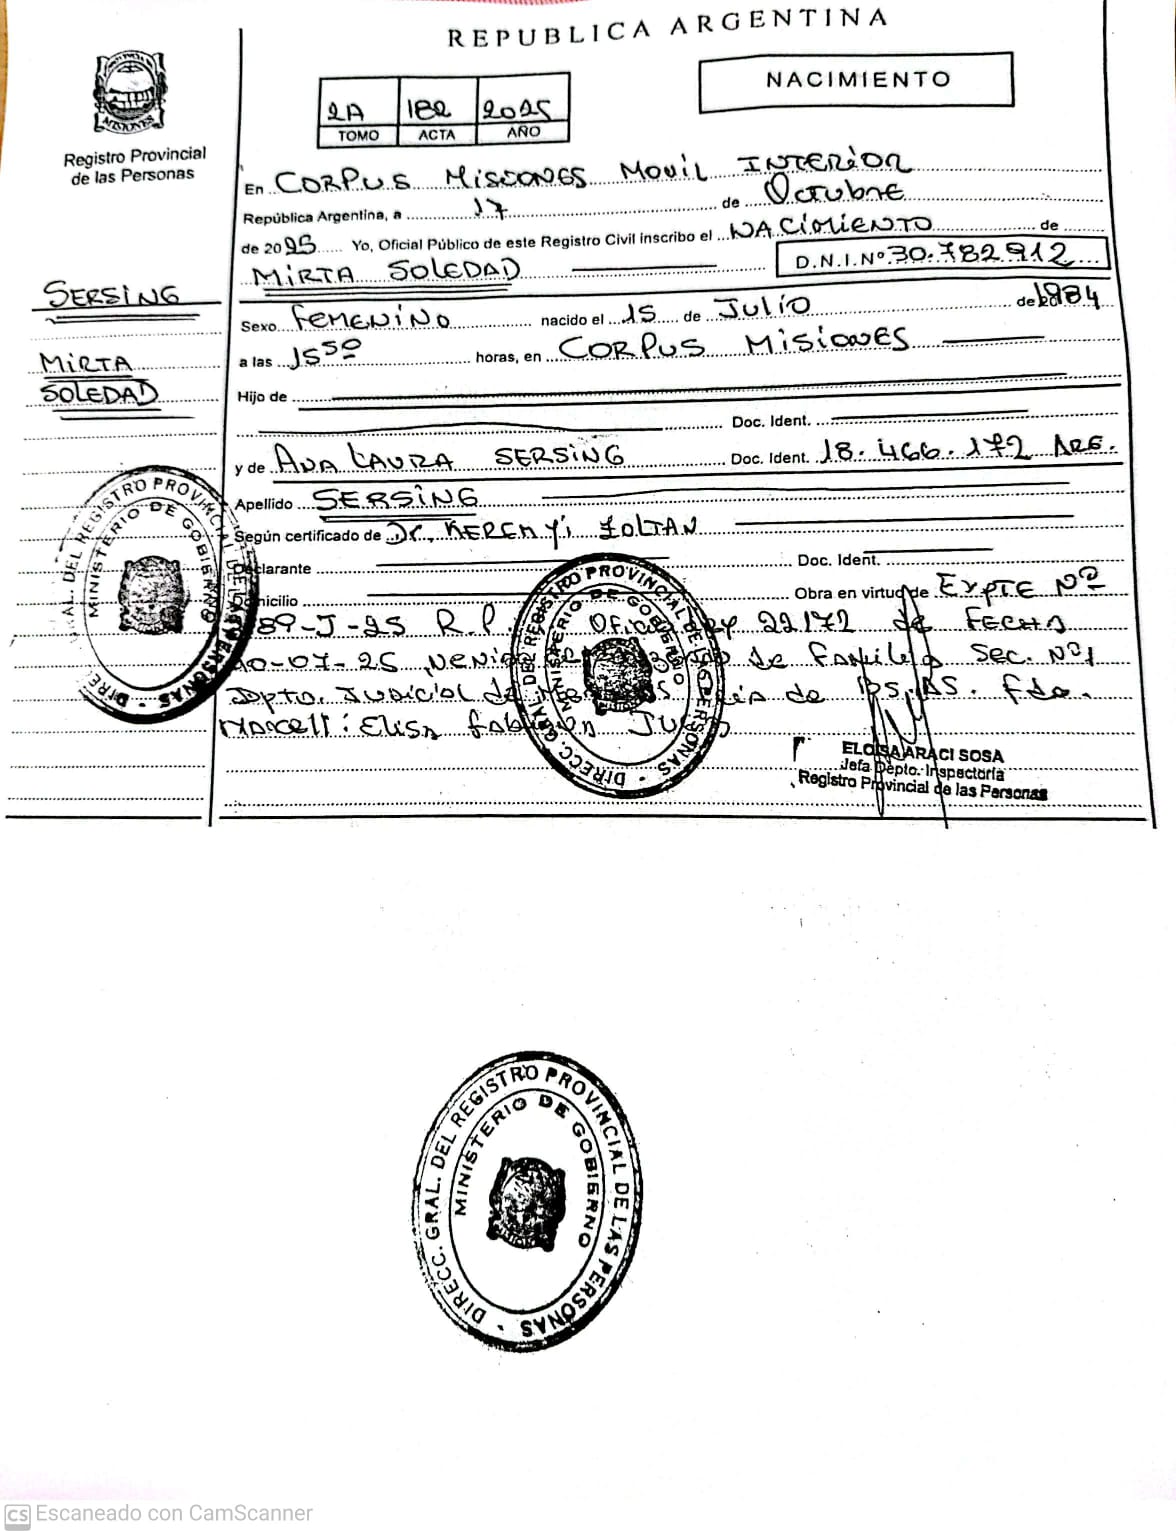 REPUBLICA ARGENTINA
NACIMIENTO
2A 182 2025
TOMO ACTA AÑO
MISIONES
Registro Provincial
de las Personas
SERSING
MIRTA
SOLEDAD
En CORPUS MISIONES MOVIL INTERIOR
República Argentina, a 17 de Octubre
de 2025 Yo, Oficial Público de este Registro Civil inscribo el NACIMIENTO de
MIRTA SOLEDAD D.N.I. Nº 30.782.912
Sexo Femenino nacido el 15 de Julio de 1984
a las 15 50 horas, en CORPUS MISIONES
Hijo de
Doc. Ident.
y de ANA LAURA SERSING Doc. Ident. 18.466.172 ARG.
Apellido SERSING
Según certificado de Dr. KEREMYI ZOLTAN
Declarante Doc. Ident.
Domicilio Obra en virtud de EXPTE Nº
89-J-25 R.P. Ley 22172 de FECHA
10-07-25 de Familia Sec. Nº1
Dpto. Judicial de de BS.AS. Fdo.
Marcelli Elisa
ELOISA ARACI SOSA
Jefa Depto. Inspectoría
Registro Provincial de las Personas
DIRECC. GRAL. DEL REGISTRO PROVINCIAL DE LAS PERSONAS
MINISTERIO DE GOBIERNO
DIRECC. GRAL. DEL REGISTRO PROVINCIAL DE LAS PERSONAS
MINISTERIO DE GOBIERNO
DIRECC. GRAL. DEL REGISTRO PROVINCIAL DE LAS PERSONAS
MINISTERIO DE GOBIERNO
CS Escaneado con CamScanner